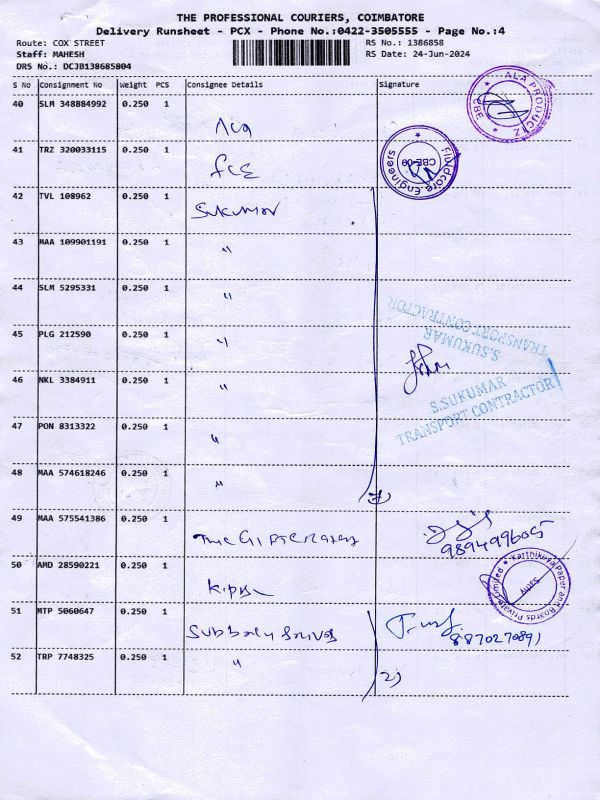 THE PROFESSIONAL COURIERS, COIMBATORE
Delivery Runsheet - PCX - Phone No.:0422-3505555 - Page No.:4
Route: COX STREET RS No.: 1386858
Staff: MAHESH RS Date: 24-Jun-2024
DRS No.: DCJB138685804
S No Consignment No Weight PCS Consignee Details Signature
40 SLM 348884992 0.250 1
Ala
ALA PRODUCTZ CBE
41 TRZ 320033115 0.250 1
FCE
Fluidcore Engineers CBE-09
42 TVL 108962 0.250 1
Sukumar
43 MAA 109901191 0.250 1
"
44 SLM 5295331 0.250 1
"
S.SUKUMAR
TRANSPORT CONTRACTOR
45 PLG 212590 0.250 1
"
46 NKL 3384911 0.250 1
"
S.SUKUMAR
TRANSPORT CONTRACTOR
47 PON 8313322 0.250 1
"
48 MAA 574618246 0.250 1
"
7)
49 MAA 575541386 0.250 1
The
50 AMD 28590221 0.250 1
Karthikeya Paper and Boards Private Limited
51 MTP 5060647 0.250 1
8870270891
52 TRP 7748325 0.250 1
"
2)